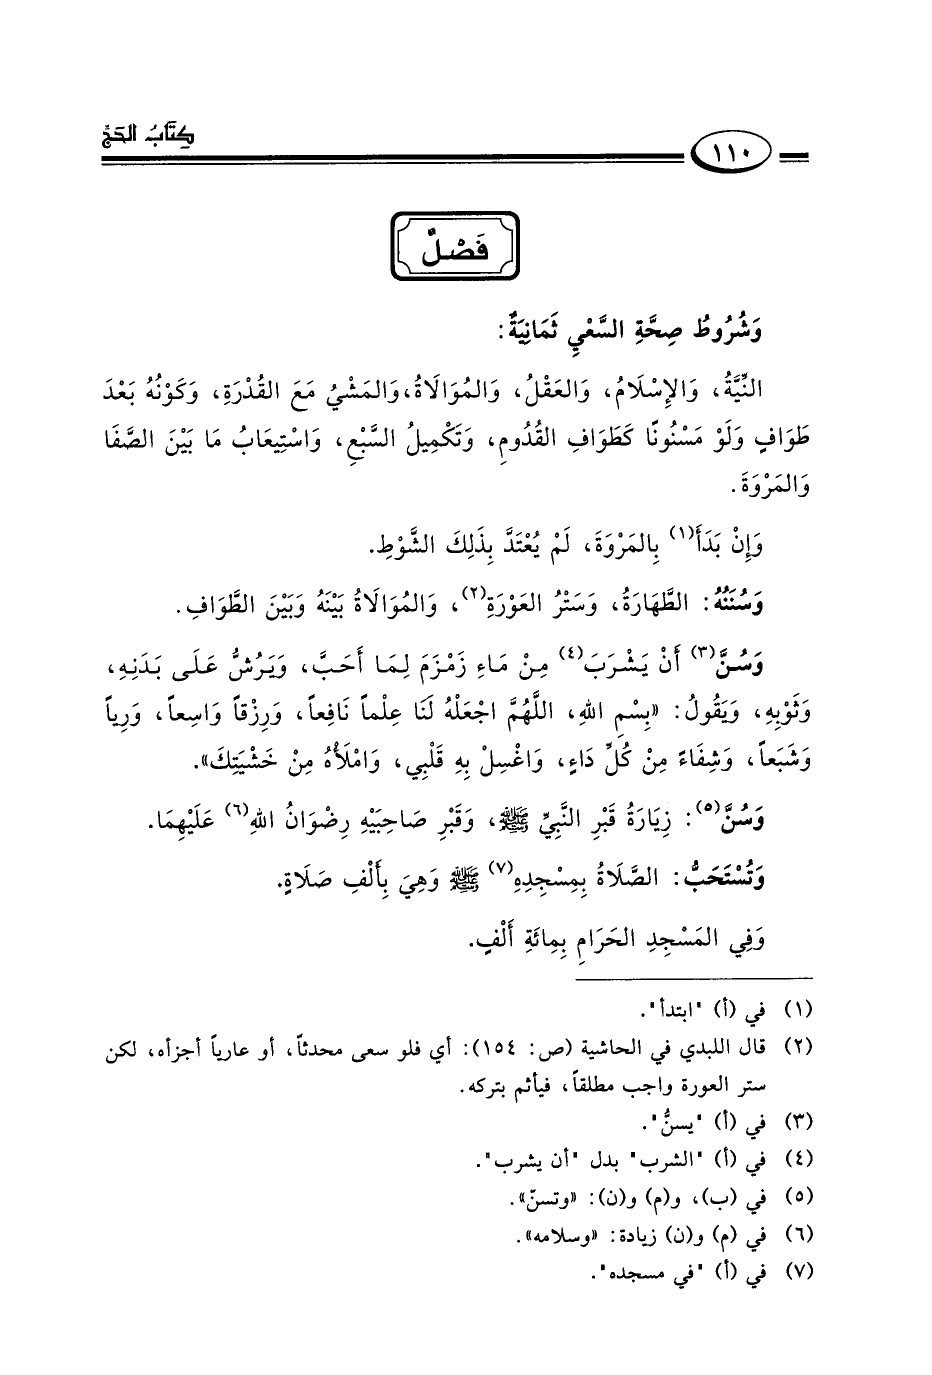 كِتَابُ الحَجِّ
١١٠
فَصْلٌ
وَشُرُوطُ صِحَّةِ السَّعْيِ ثَمَانِيَةٌ:
النِّيَّةُ، وَالإِسْلَامُ، وَالعَقْلُ، وَالمُوَالَاةُ،وَالمَشْيُ مَعَ القُدْرَةِ، وَكَوْنُهُ بَعْدَ
طَوَافٍ وَلَوْ مَسْنُونًا كَطَوَافِ القُدُومِ، وَتَكْمِيلُ السَّبْعِ، وَاسْتِيعَابُ مَا بَيْنَ الصَّفَا
وَالمَرْوَةَ.
وَإِنْ بَدَأَ(١) بِالمَرْوَةَ، لَمْ يُعْتَدَّ بِذَلِكَ الشَّوْطِ.
وَسُنَنُهُ: الطَّهَارَةُ، وَسَتْرُ العَوْرَةِ(٢)، وَالمُوَالَاةُ بَيْنَهُ وَبَيْنَ الطَّوَافِ.
وَسُنَّ(٣) أَنْ يَشْرَبَ(٤) مِنْ مَاءِ زَمْزَمَ لِمَا أَحَبَّ، وَيَرُشُّ عَلَى بَدَنِهِ،
وَثَوْبِهِ، وَيَقُولُ: «بِسْمِ اللهِ، اللَّهُمَّ اجْعَلْهُ لَنَا عِلْماً نَافِعاً، وَرِزْقاً وَاسِعاً، وَرِياً
وَشَبَعاً، وَشِفَاءً مِنْ كُلِّ دَاءٍ، وَاغْسِلْ بِهِ قَلْبِي، وَامْلَأْهُ مِنْ خَشْيَتِكَ».
وَسُنَّ(٥): زِيَارَةُ قَبْرِ النَّبِيِّ ﷺ، وَقَبْرِ صَاحِبَيْهِ رِضْوَانُ اللهِ(٦) عَلَيْهِمَا.
وَتُسْتَحَبُّ: الصَّلَاةُ بِمِسْجِدِهِ(٧) ﷺ وَهِيَ بِأَلْفِ صَلَاةٍ.
وَفِي المَسْجِدِ الحَرَامِ بِمِائَةِ أَلْفٍ.
(١) في (أ) "ابتدأ".
(٢) قال اللبدي في الحاشية (ص: ١٥٤): أي فلو سعى محدثاً، أو عارياً أجزأه، لكن
ستر العورة واجب مطلقاً، فيأثم بتركه.
(٣) في (أ) "يسنُّ".
(٤) في (أ) "الشرب" بدل "أن يشرب".
(٥) في (ب)، و(م) و(ن): «وتسنّ».
(٦) في (م) و(ن) زيادة: «وسلامه».
(٧) في (أ) "في مسجده".